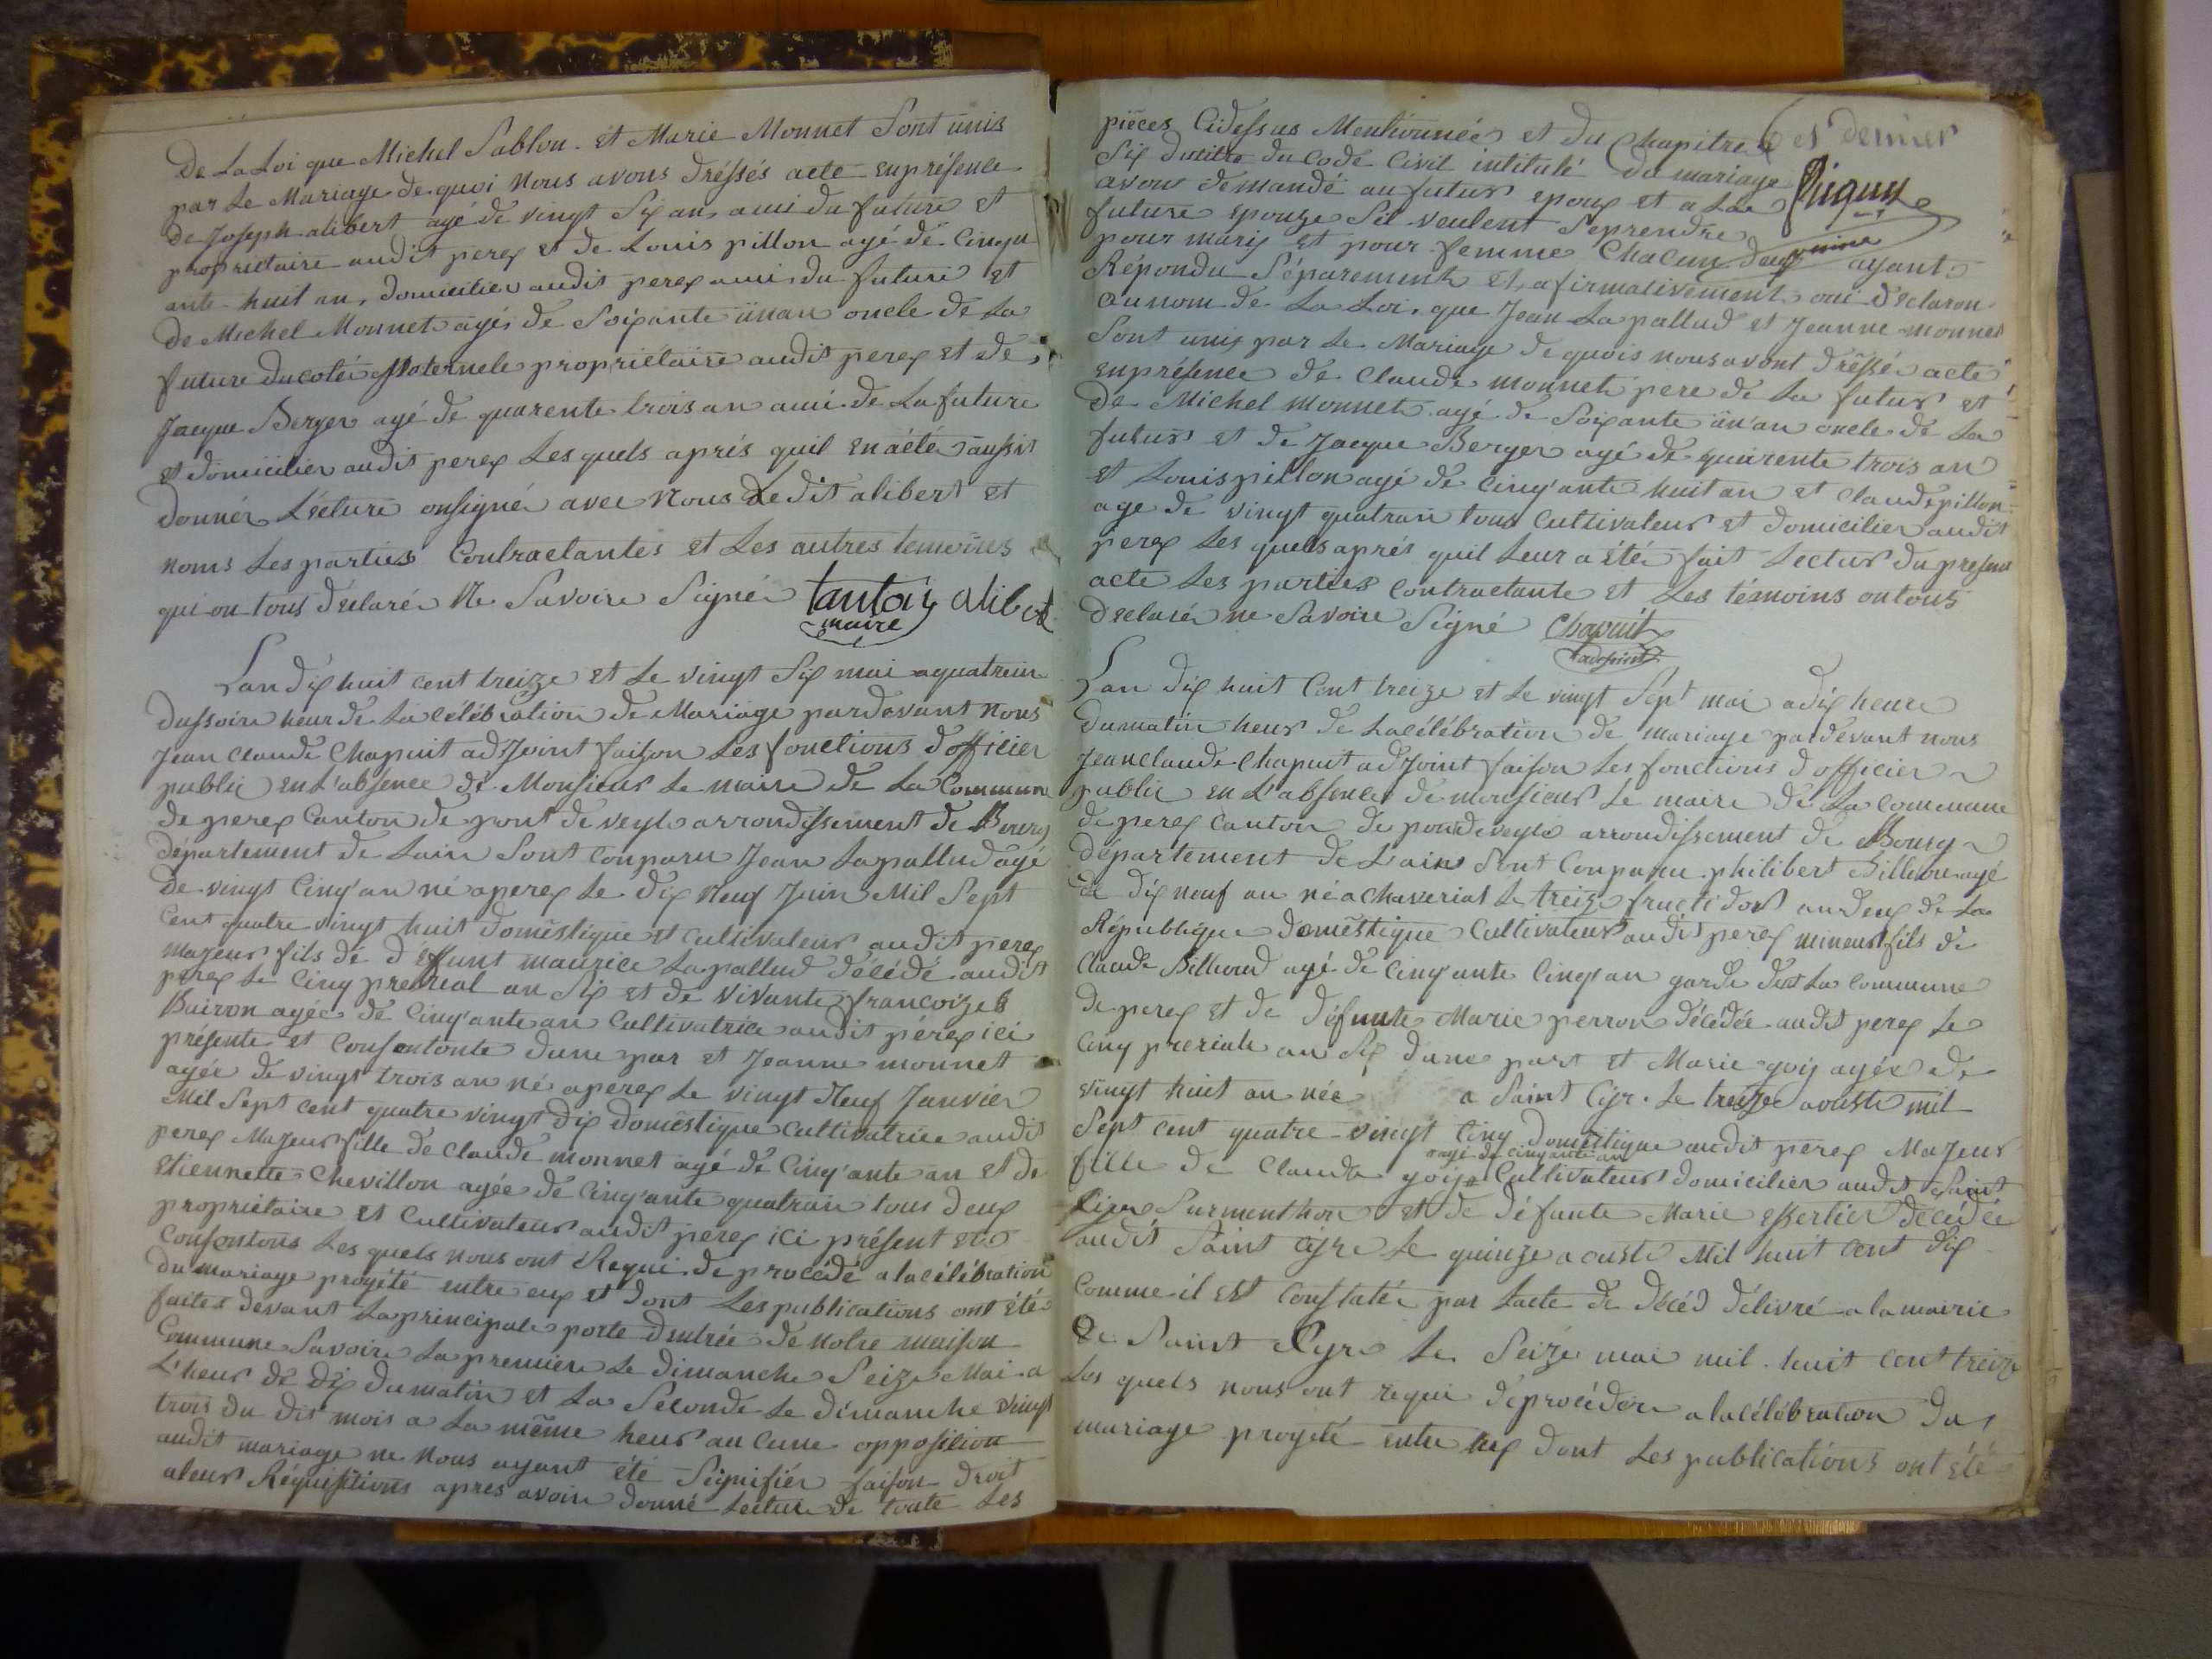 De La Loi que Michel Sablon et Marie Monnet Sont unis
par Le Mariage de quoi nous avons dréssés acte en présence
de Joseph alibert agé de vingt Six an, ami du future et
propriétaire audit perex et de Louis pillon agé de Cinqu
ante huit an, domicilier audit perex ami du future et
de Michel Monnet agé de Soixante ünan oncle de La
future ducoté Maternele propriétaire audit perex et de
Jacque Berger agé de quarente trois an ami de La future
et domicilier audit perex Les quels après quil en a été aussit
donnér Lecture onsigné avec nous Ledit alibert et
noms Les parties Contractantes et Les autres temoins
qui on tous déclaré Ne Savoire Signé tantôy alibert
maire
Lan dix huit cent treize et Le vingt Six mai a quatreure
dussoire heur de La célébration de Mariage pardevant nous
Jean Claude Chapuit adJoint faison Les fonctions d'officier
public en L'absence de Monsieur Le maire de La Commune
de perex Canton de pont de veyle arrondissement de Bourg
département de Lain Sont Comparu Jean Lapallud agé
de vingt Cinq'an né aperex Le dix Neuf Juin Mil Sept
Cent quatre vingt huit domestique et Cultivateur audit perex
mazeur fils de déffunt maurice Lapallud décédé audit
perex Le Cinq prerial an Six et de vivante francoize
Buiron agée de Cinq'ante an Cultivatrice audit pérex ici
présente et Consontonte dune par et Jeanne monnet
agée de vingt trois an né aperex Le vingt Neuf Janvier
Mil Sept cent quatre vingt Dix domestique Cultivatrice audit
perex Mazeur fille de Claude monnet agé de Cinq'ante an et de
Etiennette Chevillon agée de Cinq'ante quatran tous deux
propriétaire et Cultivateur audit perex ici présent et
Consontons Les quels nous ont Requi de procédé a la célébration
du mariage proyété entre eux et dont Les publications ont été
faites devant La principale porte dentrée de notre maison
Commune Savoire La premiere Le dimanche Seize Mai a
L'heur de dix du matin et La Seconde Le dimanche vingt
trois du dit mois a La même heur aucune opposition
audit mariage ne Nous ayant été Signifiér faison droit
aleur Réquisitions apres avoir donné Lecture de toute Les
pièces Cidessus Mentionnée et du Chapitre 6 et dernier
Six dutitre du Code Civil intitulé du mariage
avont demandé au futur epoux et a La
future epouze Sil veulent Seprendre
pour marix et pour femme Chacun deux ayant
Répondu Séparement et afirmativement oui declaron
aunom de La Loi, que Jean Lapallud et Jeanne monnet
Sont unix par Le Mariage de quois nousavont dréssé acte
enprésence de Claude monnet pere de La futur et
De Michel monnet agé de Soixante ün'an oncle de La
futur et de Jacque Berger agé de quarente trois an
et Louis pillon agé de Cinq'ante huit an et Claude pillon
age de vingt quatran tous Cultivateur et domicilier audit
perex Les quels après quil Leur a été fait Lectur du present
acte Les parties Contractante et Les témoins on tous
déclaré ne Savoire Signé Chapuit
adejoint
Lan Dix huit Cent treize et Le vingt Sept mai adix heure
dumatin heur de Lacélébration de mariage pardevant nous
Jean Claude Chapuit adJoint faison Les fonctions d'officier
public en L'absence de monsieur Le maire de La Commune
de perex Canton de pondeveyle arrondissement de Bourg
département de L'ain Sont Comparu philibert Billoud agé
de dix neuf an né a Chaveriat Le treize fructidor andeux de La
République domestique Cultivateur audit perex mineur fils de
Claude Billoud agé de Cinq'ante Cinq'an garde de La Commune
de perex et de défunte Marie perron décédée audit perex Le
Cinq preriale an Six dune part et Marie goix agée de
vingt huit an née a Saint Cyr. Le treize aouste mil
Sept cent quatre-vingt Cinq domestique audit perex Mazeur
agé de cinquante an
fille de Claude goix Cultivateur domicilier audit Saint
Cyre Surmenthon et de défunte Marie essertier décédée
audit Saint Cyre Le quinze aouste Mil huit cent dix
Comme il est Constatée par Lacte de décéd délivré a la mairie
De Saint Cyre Le Seize mai mil huit cent treize
Les quels nous ont requi deprocéder a la célébration du
mariage proyeté entre eux dont Les publications ont été